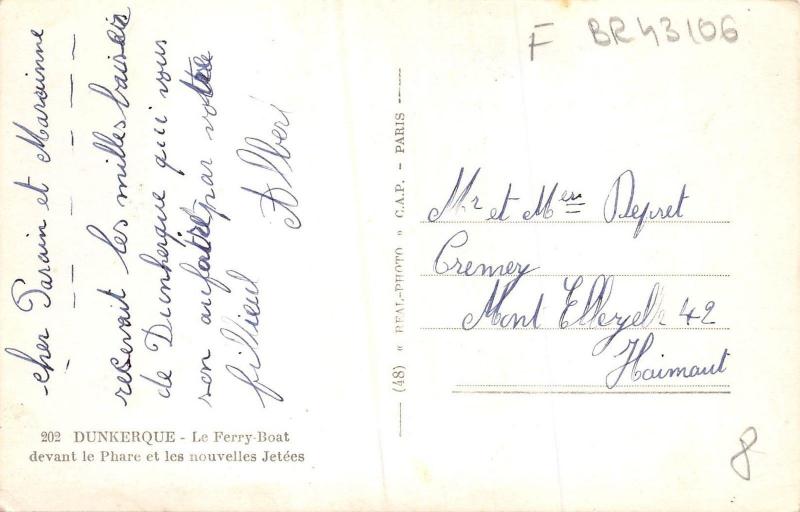 F BR43106
cher Parain et Marainne
recevait les milles baisers
de Dunkerque qui vous
son anfaitre par votre
fillieul Albert
(48) « REAL-PHOTO » C.A.P. - PARIS
Mr et Mer Depret
Cremery
Mont Ellezelle 42
Haimaut
202 DUNKERQUE - Le Ferry-Boat
devant le Phare et les nouvelles Jetées
8